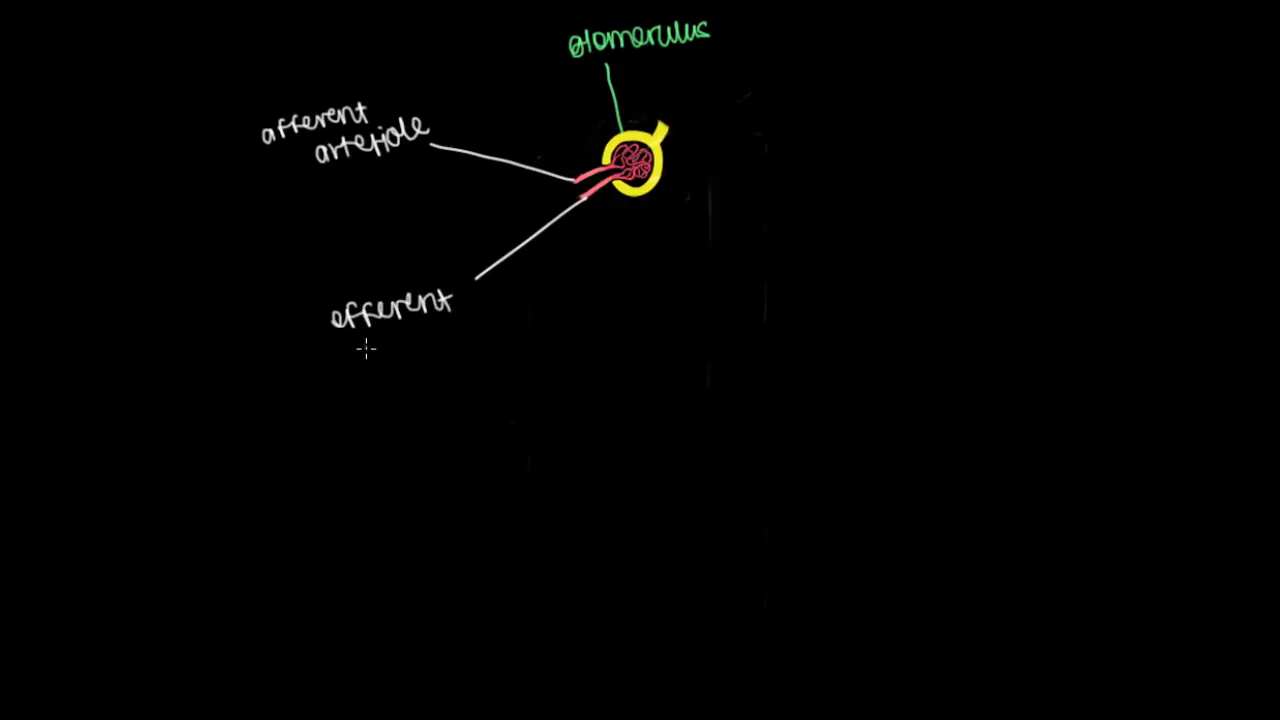 glomerulus
afferent
arteriole
efferent